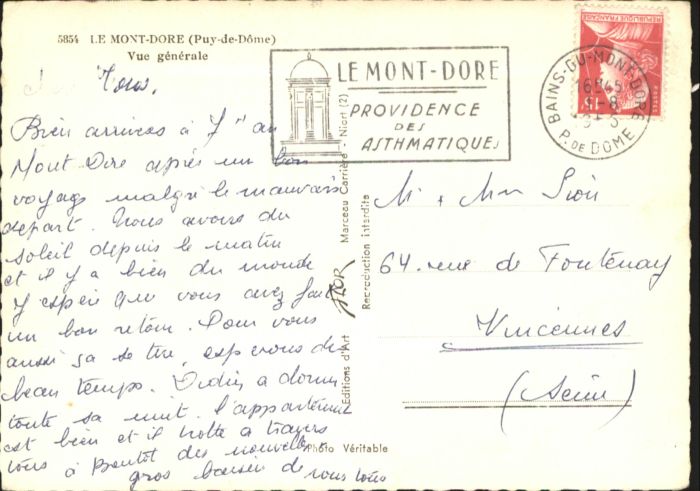 5854 LE MONT-DORE (Puy-de-Dôme)
Vue générale
LE MONT-DORE
PROVIDENCE
DES
ASTHMATIQUES
BAINS-DU-MONT-DORE
P. DE DOME
REPUBLIQUE FRANÇAISE
Tous,
Bien arrivés à 7 h au
Mont Dore après un bon
voyage malgré le mauvais
départ. Nous avons du
soleil depuis le matin
et il y a bien du monde
J'espère que vous avez fait
un bon retour. Pour vous
aussi ça se tire, espérons du
beau temps. a dormi
toute sa nuit. l'appartement
est bien et il trotte à travers
tous à Bientôt des nouvelles
gros baisers de nous tous
Editions d'Art FLOR Marceau Carrière - Niort (2)
Reproduction interdite
Photo Véritable
M. & Mme
64. rue de Fontenay
Vincennes
(Seine)